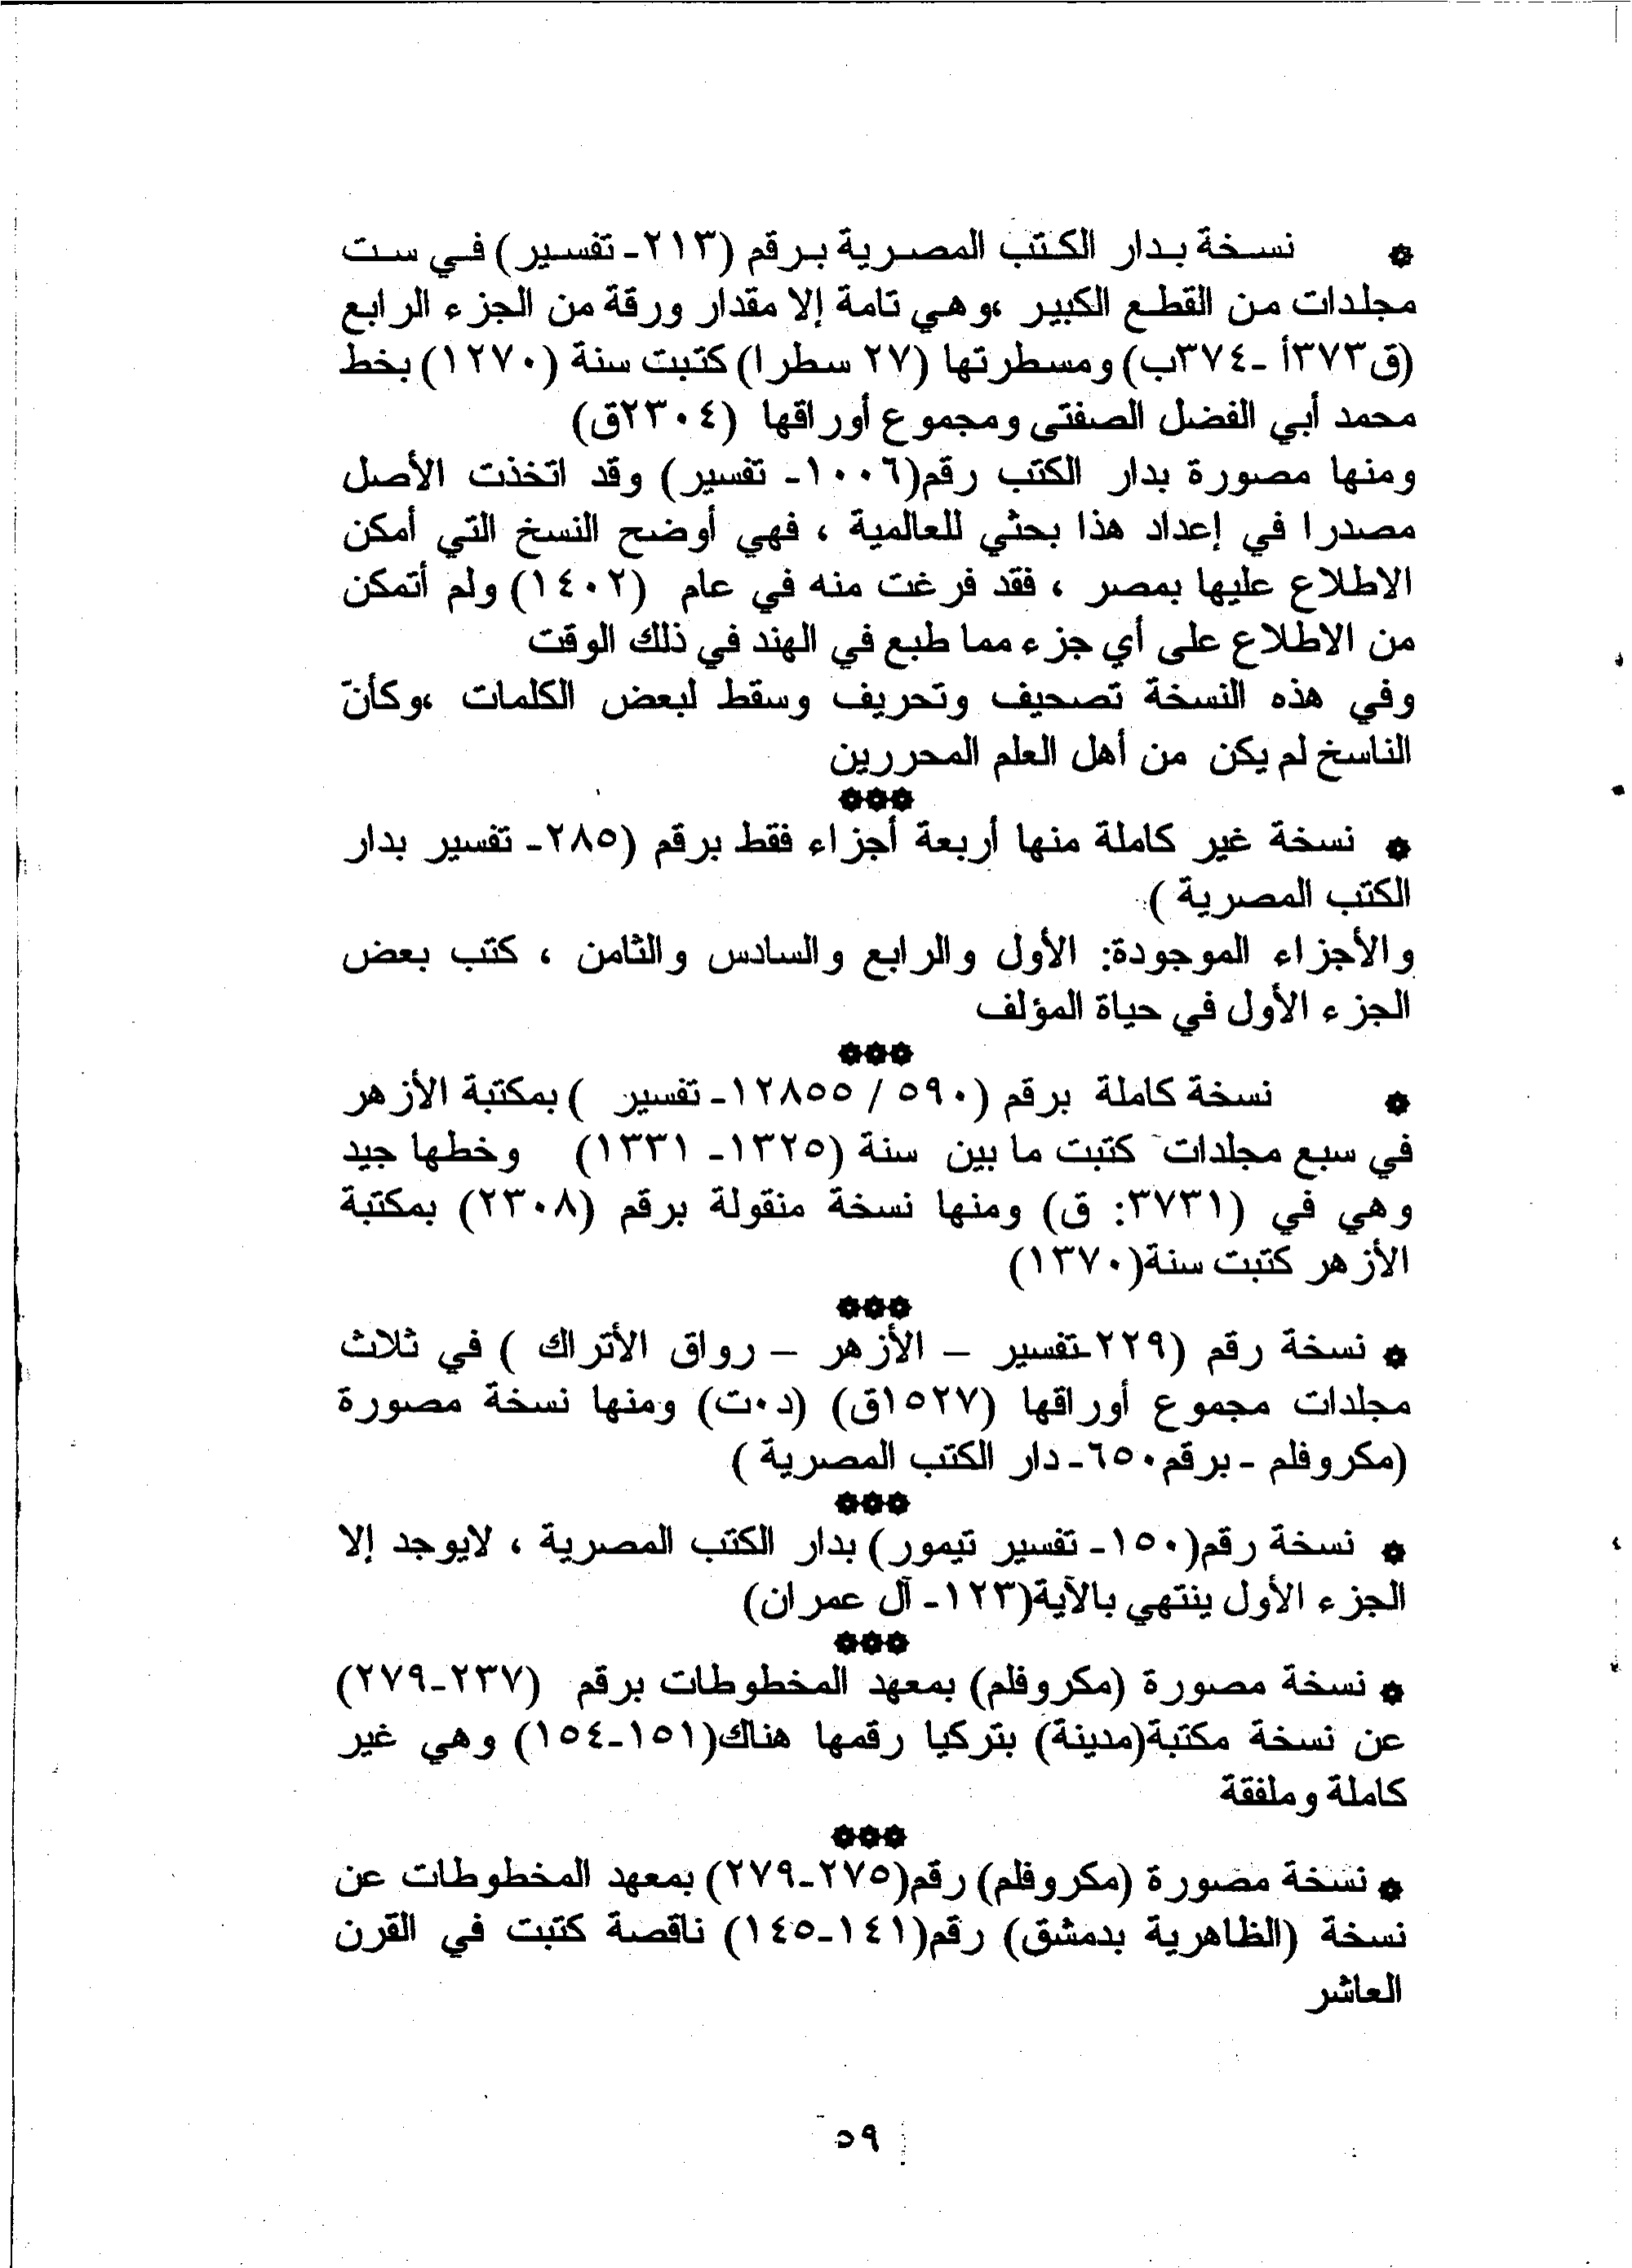 ۞ نسخة بدار الكتب المصرية برقم (٢١٣- تفسير) في ست
مجلدات من القطع الكبير ،وهي تامة إلا مقدار ورقة من الجزء الرابع
(ق٣٧٣أ -٣٧٤ب) ومسطرتها (٢٧ سطرا) كتبت سنة (١٢٧٠) بخط
محمد أبي الفضل الصفتى ومجموع أوراقها (٢٣٠٤ق)
ومنها مصورة بدار الكتب رقم(١٠٠٦- تفسير) وقد اتخذت الأصل
مصدرا في إعداد هذا بحثي للعالمية ، فهي أوضح النسخ التي أمكن
الاطلاع عليها بمصر ، فقد فرغت منه في عام (١٤٠٢) ولم أتمكن
من الاطلاع على أي جزء مما طبع في الهند في ذلك الوقت
وفي هذه النسخة تصحيف وتحريف وسقط لبعض الكلمات ،وكأنّ
الناسخ لم يكن من أهل العلم المحررين
۞۞۞
۞ نسخة غير كاملة منها أربعة أجزاء فقط برقم (٢٨٥- تفسير بدار
الكتب المصرية )
والأجزاء الموجودة: الأول والرابع والسادس والثامن ، كتب بعض
الجزء الأول في حياة المؤلف
۞۞۞
۞ نسخة كاملة برقم (٥٩٠ / ١٢٨٥٥- تفسير ) بمكتبة الأزهر
في سبع مجلدات كتبت ما بين سنة (١٣٢٥- ١٣٣١) وخطها جيد
وهي في (٣٧٣١: ق) ومنها نسخة منقولة برقم (٢٣٠٨) بمكتبة
الأزهر كتبت سنة(١٣٧٠)
۞۞۞
۞ نسخة رقم (٢٢٩-تفسير – الأزهر – رواق الأتراك ) في ثلاث
مجلدات مجموع أوراقها (١٥٢٧ق) (د٠ت) ومنها نسخة مصورة
(مكروفلم - برقم٦٥٠- دار الكتب المصرية )
۞۞۞
۞ نسخة رقم(١٥٠- تفسير تيمور) بدار الكتب المصرية ، لايوجد إلا
الجزء الأول ينتهي بالآية(١٢٣- آل عمران)
۞۞۞
۞ نسخة مصورة (مكروفلم) بمعهد المخطوطات برقم (٢٣٧-٢٧٩)
عن نسخة مكتبة(مدينة) بتركيا رقمها هناك(١٥١-١٥٤) وهي غير
كاملة وملفقة
۞۞۞
۞ نسخة مصورة (مكروفلم) رقم(٢٧٥-٢٧٩) بمعهد المخطوطات عن
نسخة (الظاهرية بدمشق) رقم(١٤١-١٤٥) ناقصة كتبت في القرن
العاشر
٥٩